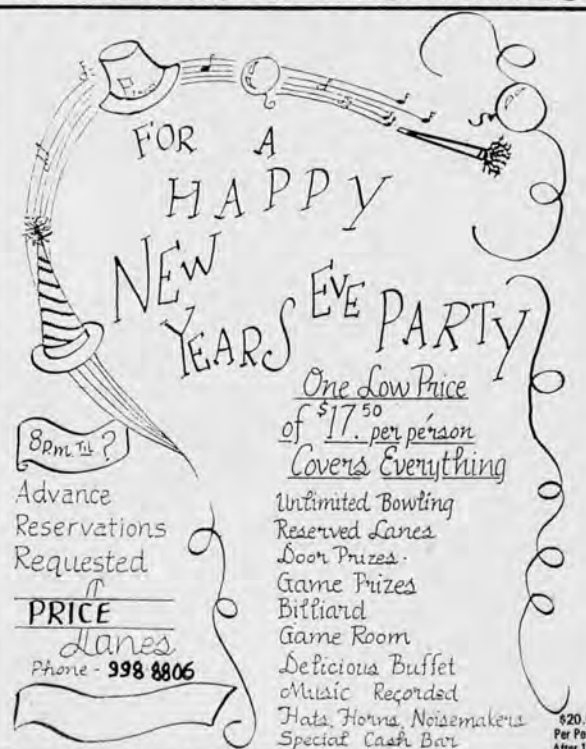 FOR A
HAPPY
NEW
YEARS EVE PARTY
One Low Price
of $17.50 per person
Covers Everything
8 p.m. Til ?
Advance
Reservations
Requested
PRICE
Lanes
Phone - 998 8806
Unlimited Bowling
Reserved Lanes
Door Prizes.
Game Prizes
Billiard
Game Room
Delicious Buffet
Music Recorded
Hats, Horns, Noisemakers
Special Cash Bar
$20.
Per